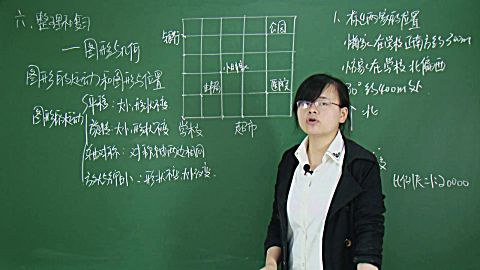 六、整理和复习
——图形与几何
图形的运动和图形与位置
图形的运动
平移：大小形状不变
旋转：大小形状不变
轴对称：对称轴两边相同
放大与缩小：形状不变，大小改变
公园
小明家
医院
学校
超市
1、标出两家的位置
在学校正南方约300m
在学校北偏西
30°约400m处
北
比例尺=1:20000